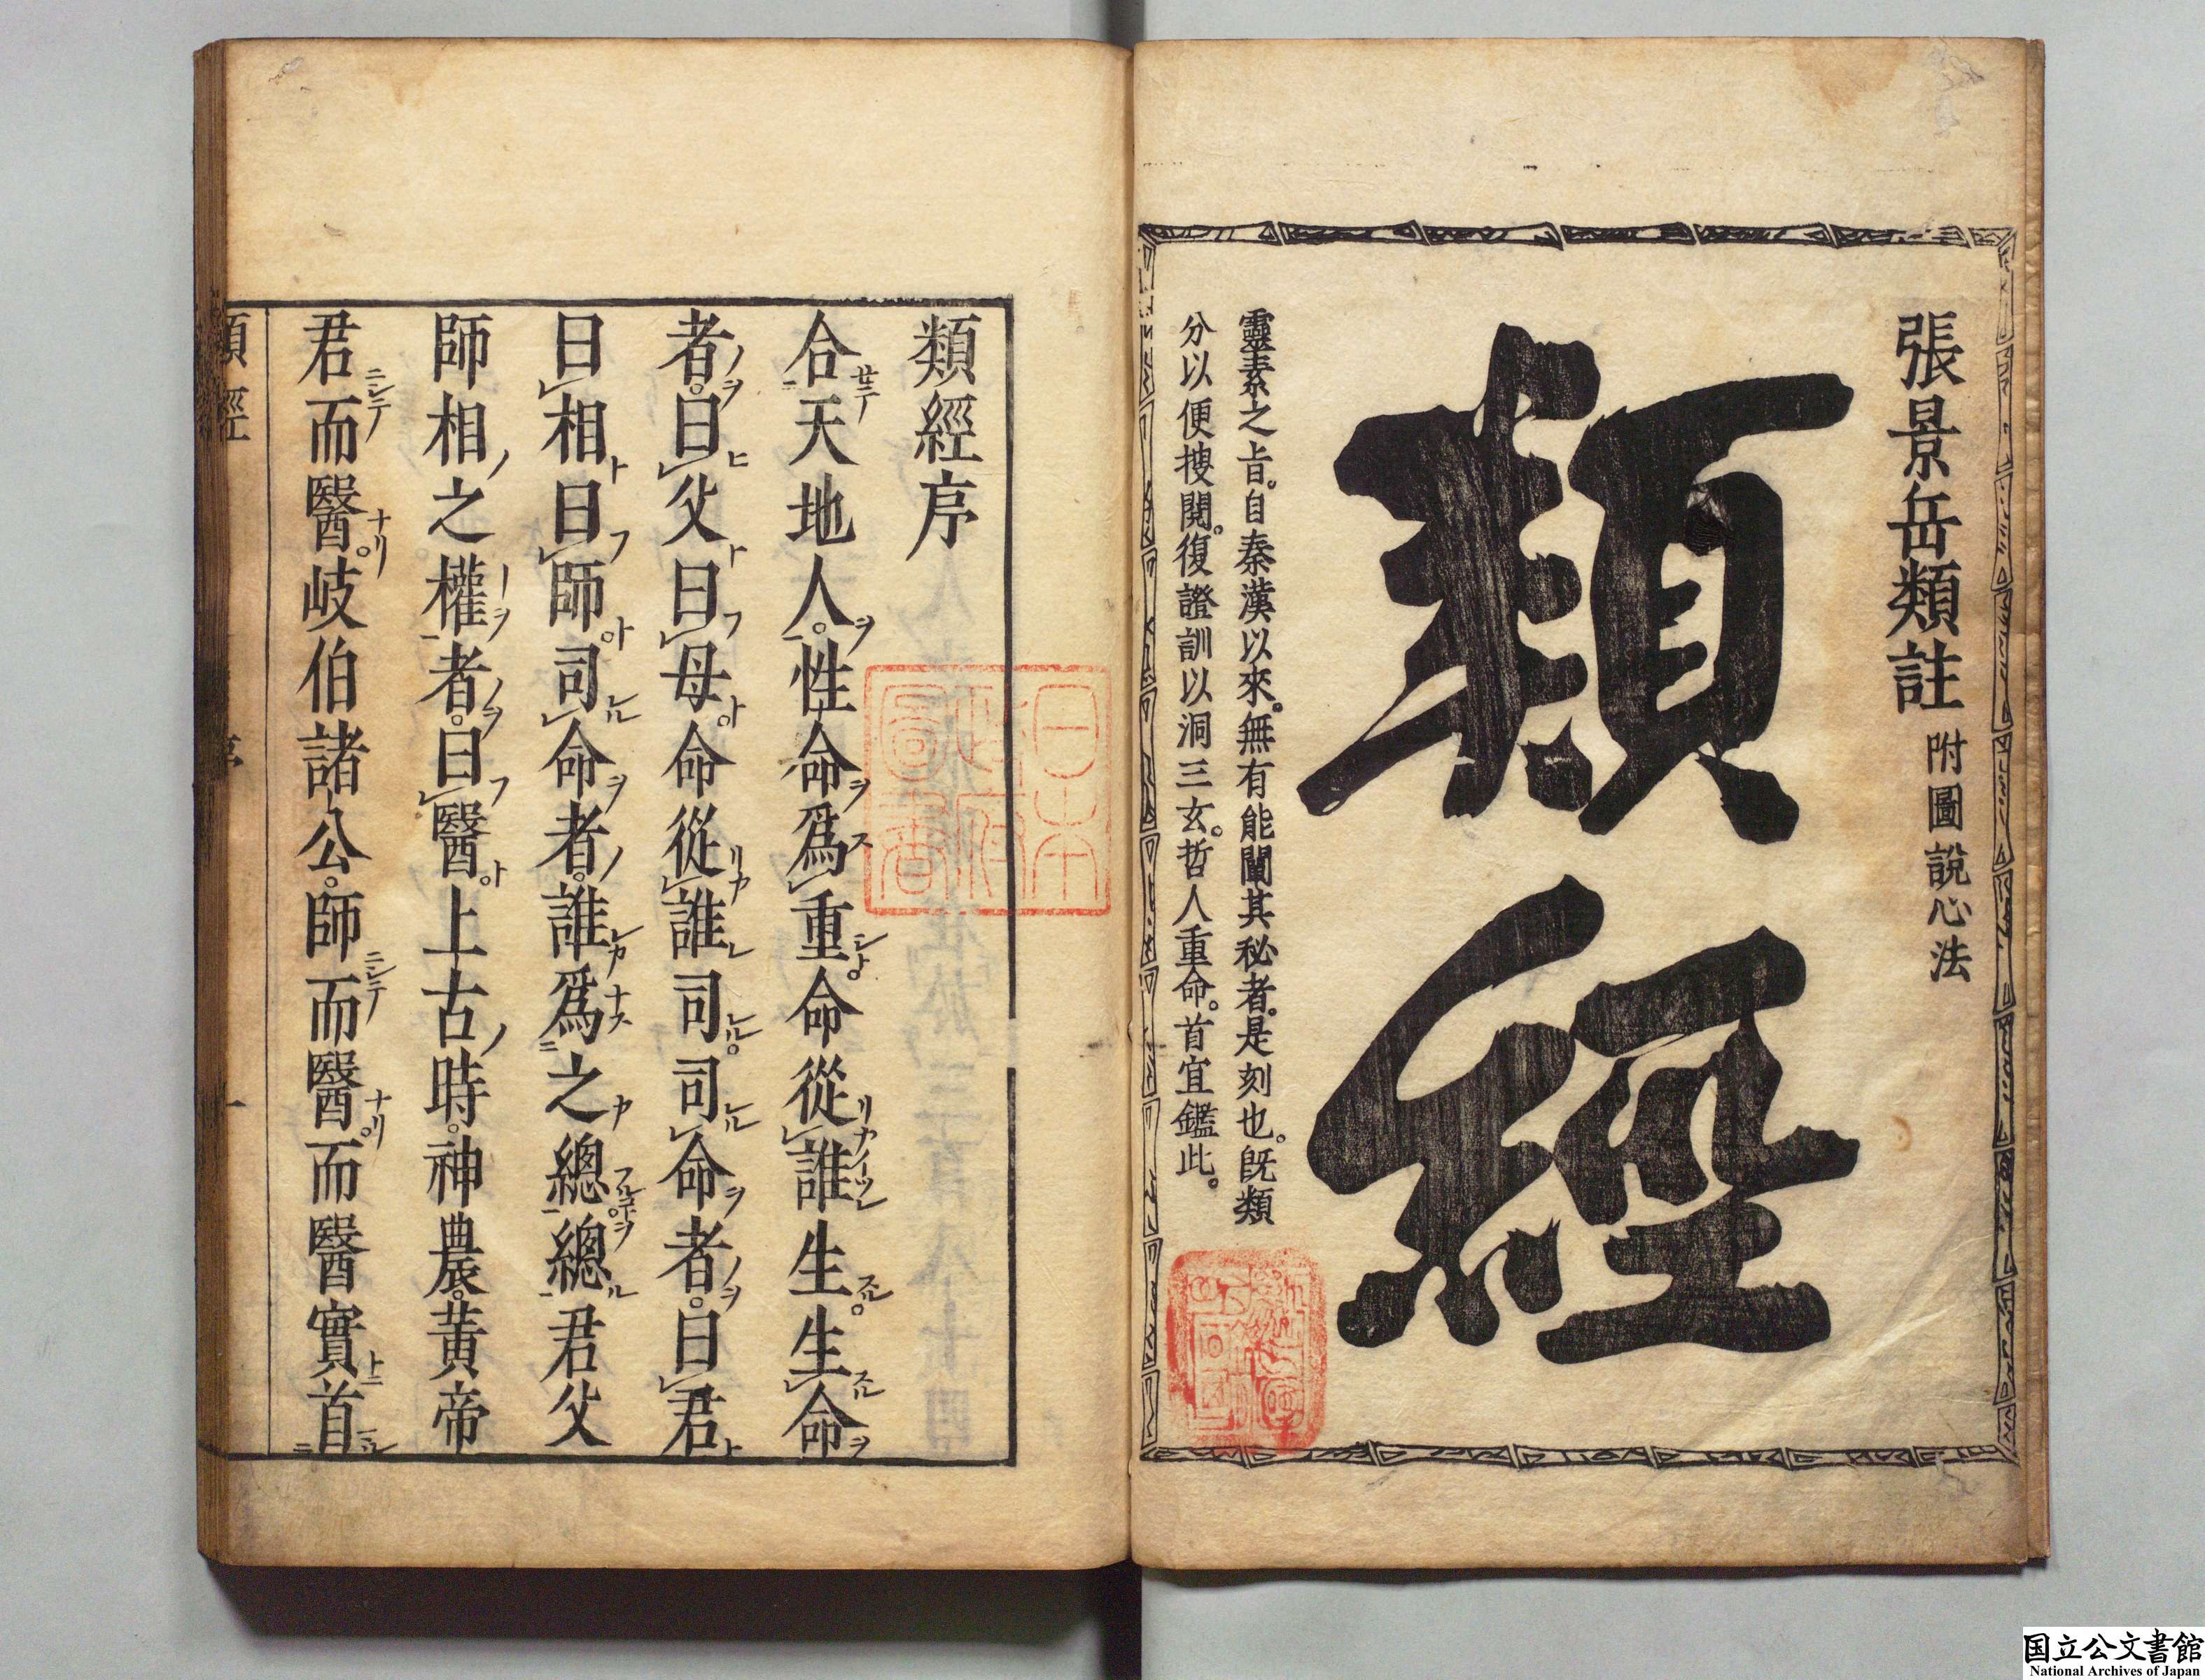 張景岳類註 附圖說心法
類經
靈素之旨。自秦漢以來。無有能闡其秘者。是刻也。既類
分以便捜閱。復證訓以洞三玄。哲人重命。首宜鑑此。
類經序
合天地人。性命爲重命從誰生生命
者。曰父曰母命從誰司司命者。曰君
曰相曰師。司命者。誰爲之總總君父
師相之權者。曰醫。上古時。神農。黃帝
君而醫。岐伯諸公。師而醫。而醫實首
類經
序
一
日本政府圖書
国立公文書館
National Archives of Japan